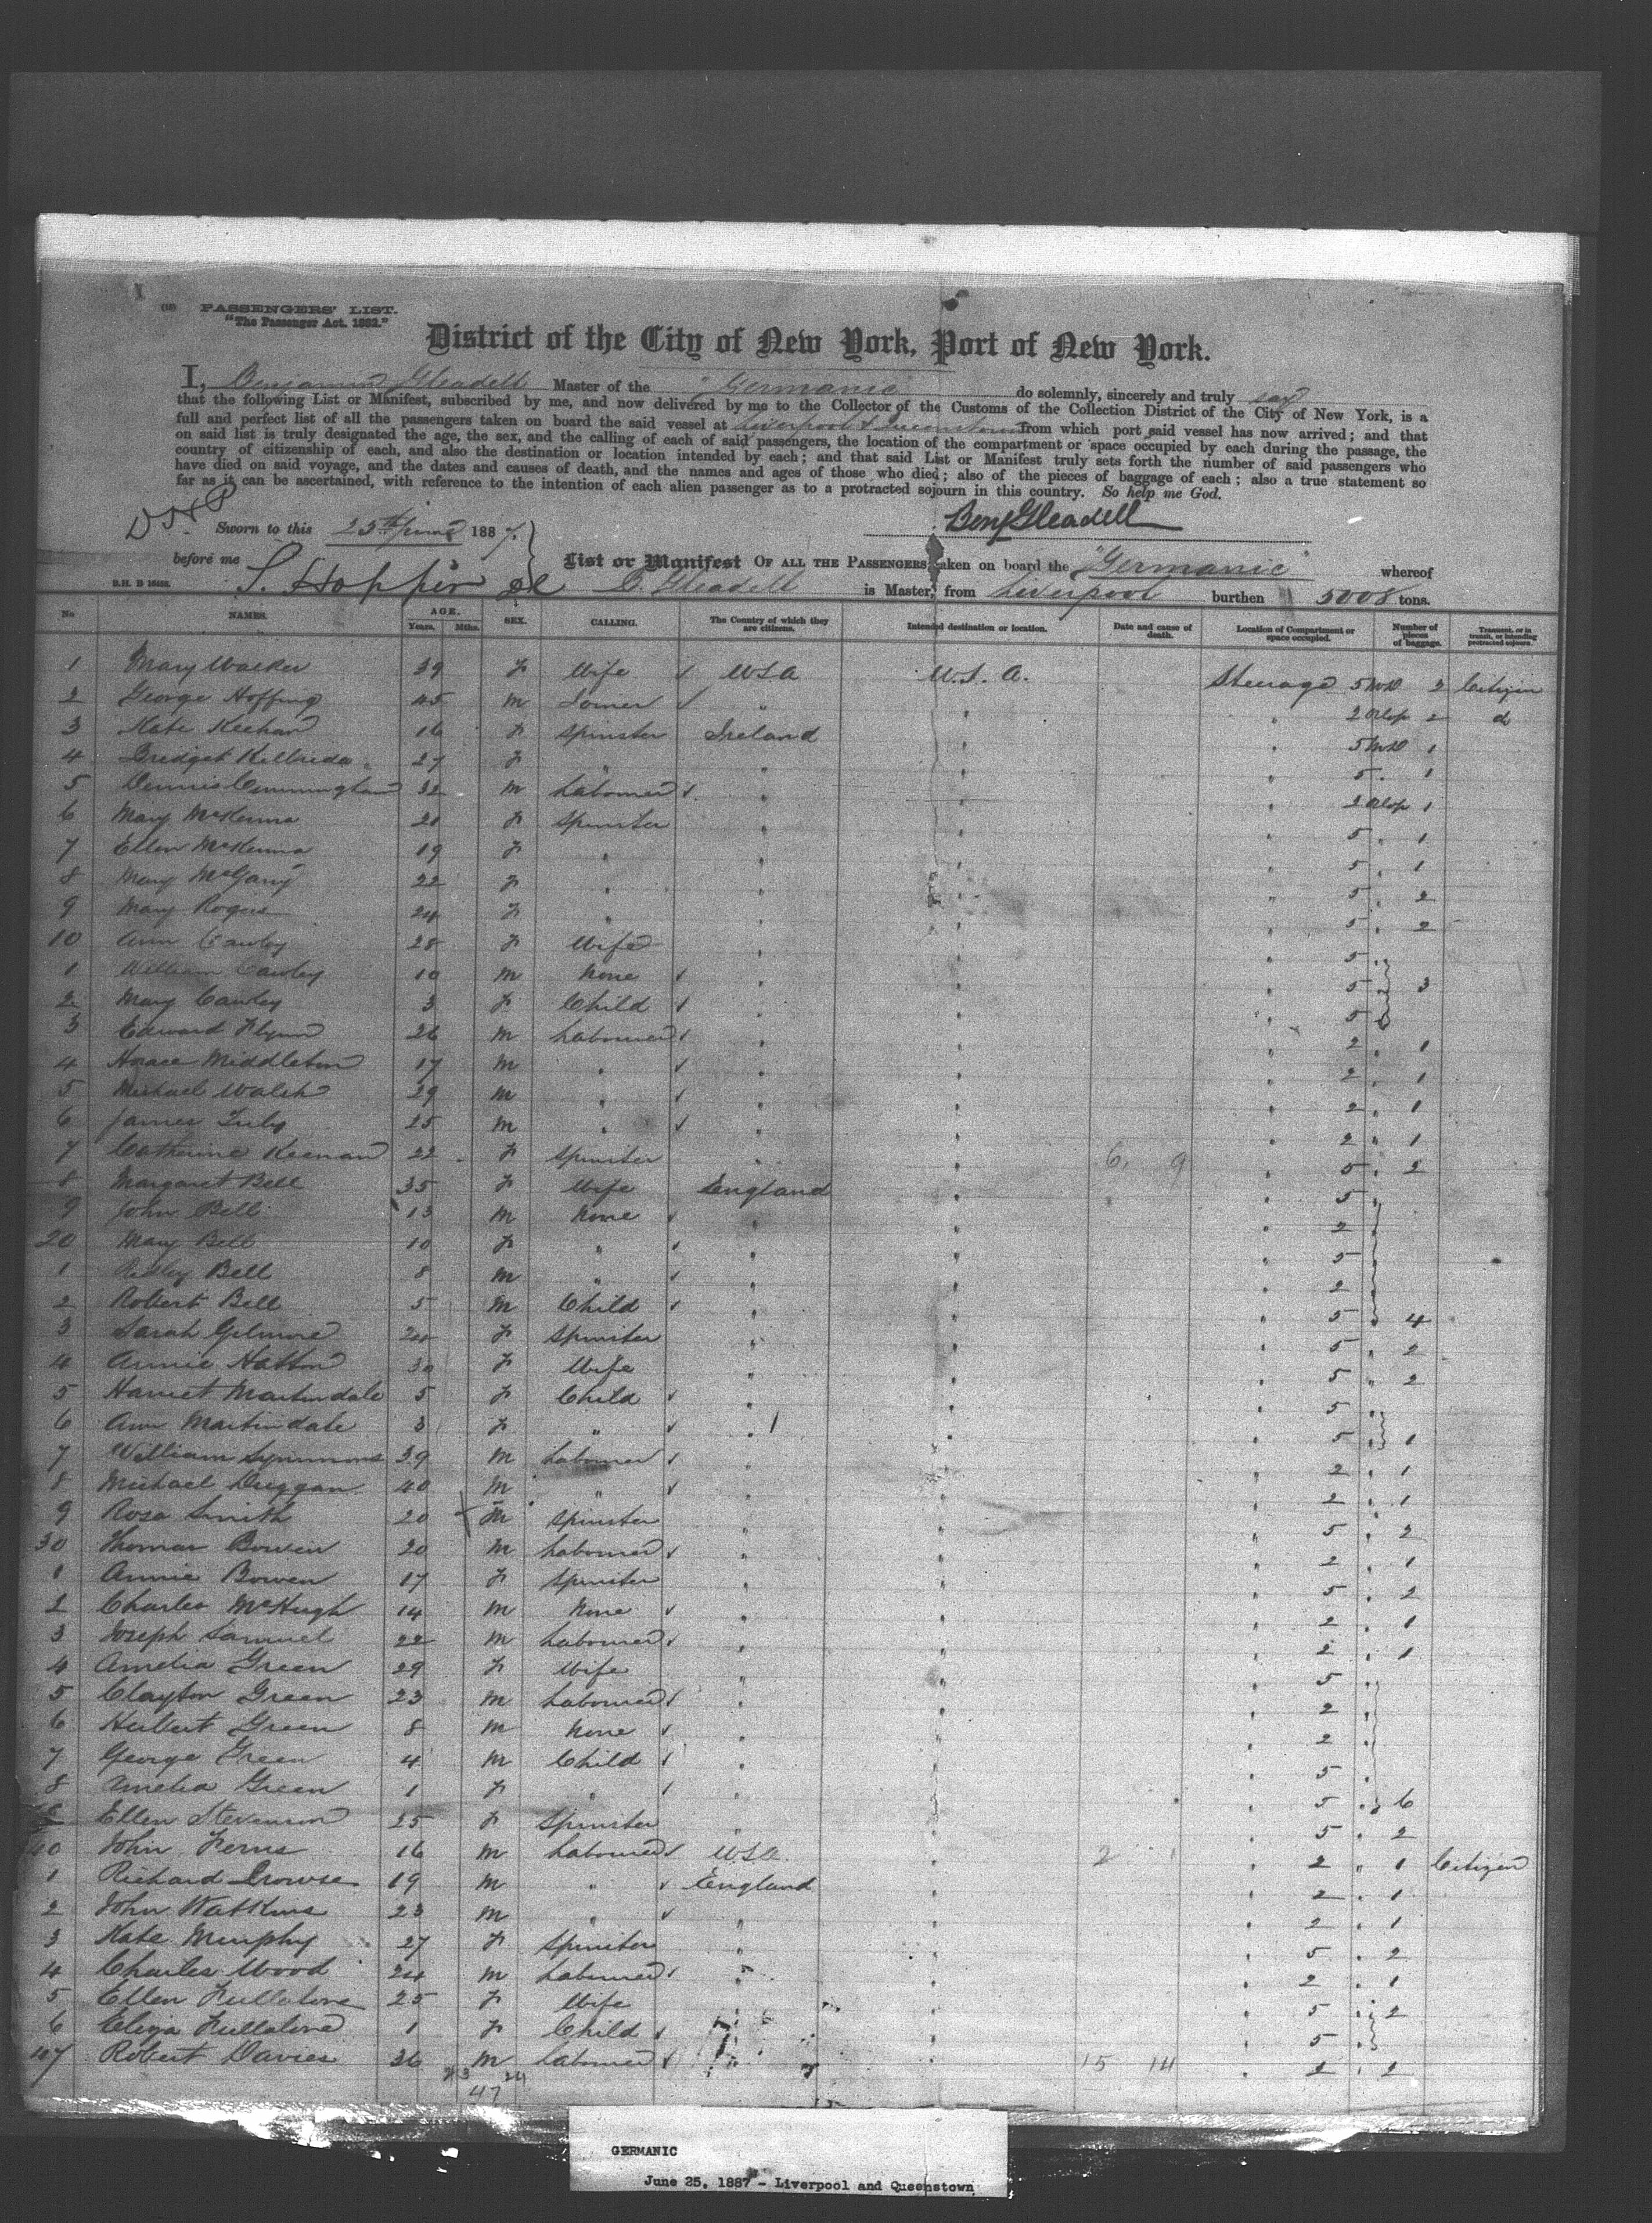 (18) PASSENGERS' LIST.
"The Passenger Act. 1882."
District of the City of New York, Port of New York.
I, Benjamin Gleadell Master of the "Germanic" do solemnly, sincerely and truly say
that the following List or Manifest, subscribed by me, and now delivered by me to the Collector of the Customs of the Collection District of the City of New York, is a
full and perfect list of all the passengers taken on board the said vessel at Liverpool & Queenstown from which port said vessel has now arrived; and that
on said list is truly designated the age, the sex, and the calling of each of said passengers, the location of the compartment or space occupied by each during the passage, the
country of citizenship of each, and also the destination or location intended by each; and that said List or Manifest truly sets forth the number of said passengers who
have died on said voyage, and the dates and causes of death, and the names and ages of those who died; also of the pieces of baggage of each; also a true statement so
far as it can be ascertained, with reference to the intention of each alien passenger as to a protracted sojourn in this country. So help me God.
Sworn to this 25th June 1887. Benj Gleadell
before me S. Hopper List or Manifest OF ALL THE PASSENGERS taken on board the "Germanic" whereof
B. Gleadell is Master, from Liverpool burthen 5008 tons.
No NAMES. AGE. Years. Mths. SEX. CALLING. The Country of which they are citizens. Intended destination or location. Date and cause of death. Location of Compartment or space occupied. Number of pieces of baggage. Transient, or in transit, or intending protracted sojourn.
1 Mary Walker 39 F Wife USA U.S.A. Steerage 5 2 Citizen
2 George Hopping 45 M Joiner " " " 2 Orlop 2 do
3 Kate Keehan 16 F Spinster Ireland " " 5 1
4 Bridget Kilbride 27 F " " " " 5 " 1
5 Dennis Cunningham 32 M Labourer " " " 2 Orlop 1
6 Mary McKenna 21 F Spinster " " " 5 " 1
7 Ellen McKenna 19 F " " " " 5 " 1
8 Mary McGarry 22 F " " " " 5 " 2
9 Mary Rogers 24 F " " " " 5 " 2
10 Ann Cawley 28 F Wife " " " 5 "
1 William Cawley 10 M None " " " 5 " 3
2 Mary Cawley 3 F Child " " " 5 "
3 Edward Flynn 26 M Labourer " " " 2 " 1
4 Horace Middleton 17 M " " " " 2 " 1
5 Michael Walsh 29 M " " " " 2 " 1
6 James 25 M " " " " 2 " 1
7 Catherine Keenan 22 F Spinster " " 6 9 " 5 " 2
8 Margaret Bell 35 F Wife England " " 5 "
9 John Bell 13 M None " " " 2
20 Mary Bell 10 F " " " " 5
1 Ridley Bell 8 M " " " " 2
2 Robert Bell 5 M Child " " " 5 4
3 Sarah Gilmore 24 F Spinster " " " 5 " 2
4 Annie Hatton 30 F Wife " " " 5 " 2
5 Harriet Martindale 5 F Child " " " 5 "
6 Ann Martindale 3 F " " " " 5 " 1
7 William Symmons 39 M Labourer " " " 2 " 1
8 Michael Duggan 40 M " " " " 2 " 1
9 Rosa Smith 20 M Spinster " " " 5 " 2
30 Thomas Bowen 20 M Labourer " " " 2 " 1
1 Annie Bowen 17 F Spinster " " " 5 " 2
2 Charles McHugh 14 M None " " " 2 " 1
3 Joseph Samuel 22 M Labourer " " " 2 " 1
4 Amelia Green 29 F Wife " " " 5
5 Clayton Green 23 M Labourer " " " 2 "
6 Herbert Green 8 M None " " " 2 "
7 George Green 4 M Child " " " 5 "
8 Amelia Green 1 F " " " " 5 " 6
Ellen Stevenson 25 F Spinster " " " 5 " 2
40 John Ferns 16 M Labourer USA " 2 1 " 2 " 1 Citizen
1 Richard Crowse 19 M " England " " 2 " 1
2 John Watkins 23 M " " " " 2 " 1
3 Kate Murphy 27 F Spinster " " " 5 " 2
4 Charles Wood 24 M Labourer " " " 2 " 1
5 Ellen Fullalove 25 F Wife " " " 5 " 2
6 Eliza Fullalove 1 F Child " " " 5 "
47 Robert Davies 26 M Labourer " " 15 14 " 2 " 2
23 24
47
GERMANIC
June 25, 1887 - Liverpool and Queenstown